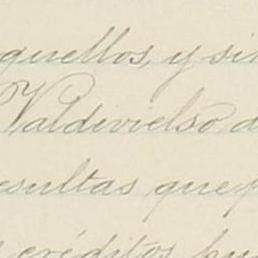 aquellos, y sin
Valdivielso d
esultas que p
créditos hu